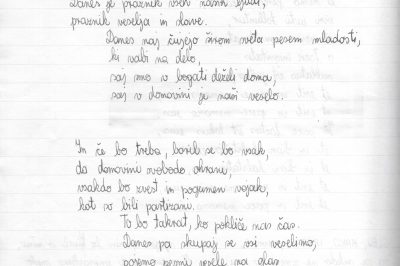 Danes je praznik vseh naših ljudi,
praznik veselja in slave.
Danes naj čujejo širom sveta pesem mladosti,
ki vabi na delo,
saj smo v bogati deželi doma,
saj v domovini je naši veselo.
In če bo treba, boril se bo vsak,
da domovini svobodo ohrani,
vsakdo bo zvest in pogumen vojak,
kot so bili partizani.
To bo takrat, ko pokliče nas čas.
Danes pa skupaj se vsi veselimo,
pojemo pesmi vesele na glas